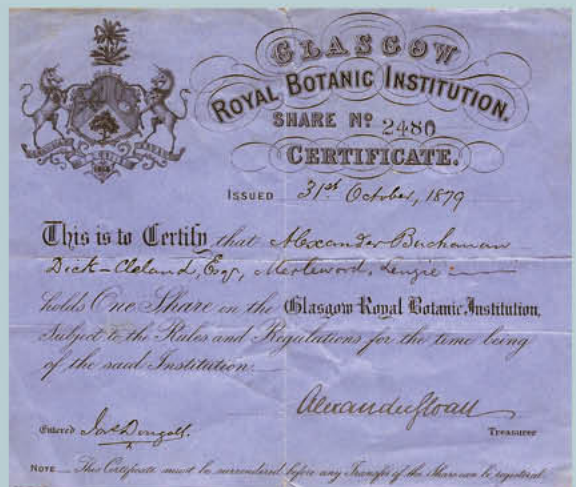 GLASGOW
ROYAL BOTANIC INSTITUTION.
SHARE Nº 2480
CERTIFICATE.
ISSUED 31st October, 1879
This is to Certify that Alexander Buchanan
Dick-Cleland, Esqr, Merleword, Lenzie
holds One Share in the Glasgow Royal Botanic Institution,
Subject to the Rules and Regulations for the time being
of the said Institution.
Alexander Sloan
Entered Jas Dougall.
Treasurer
NOTE This Certificate must be surrendered before any Transfer of the Share can be registered.